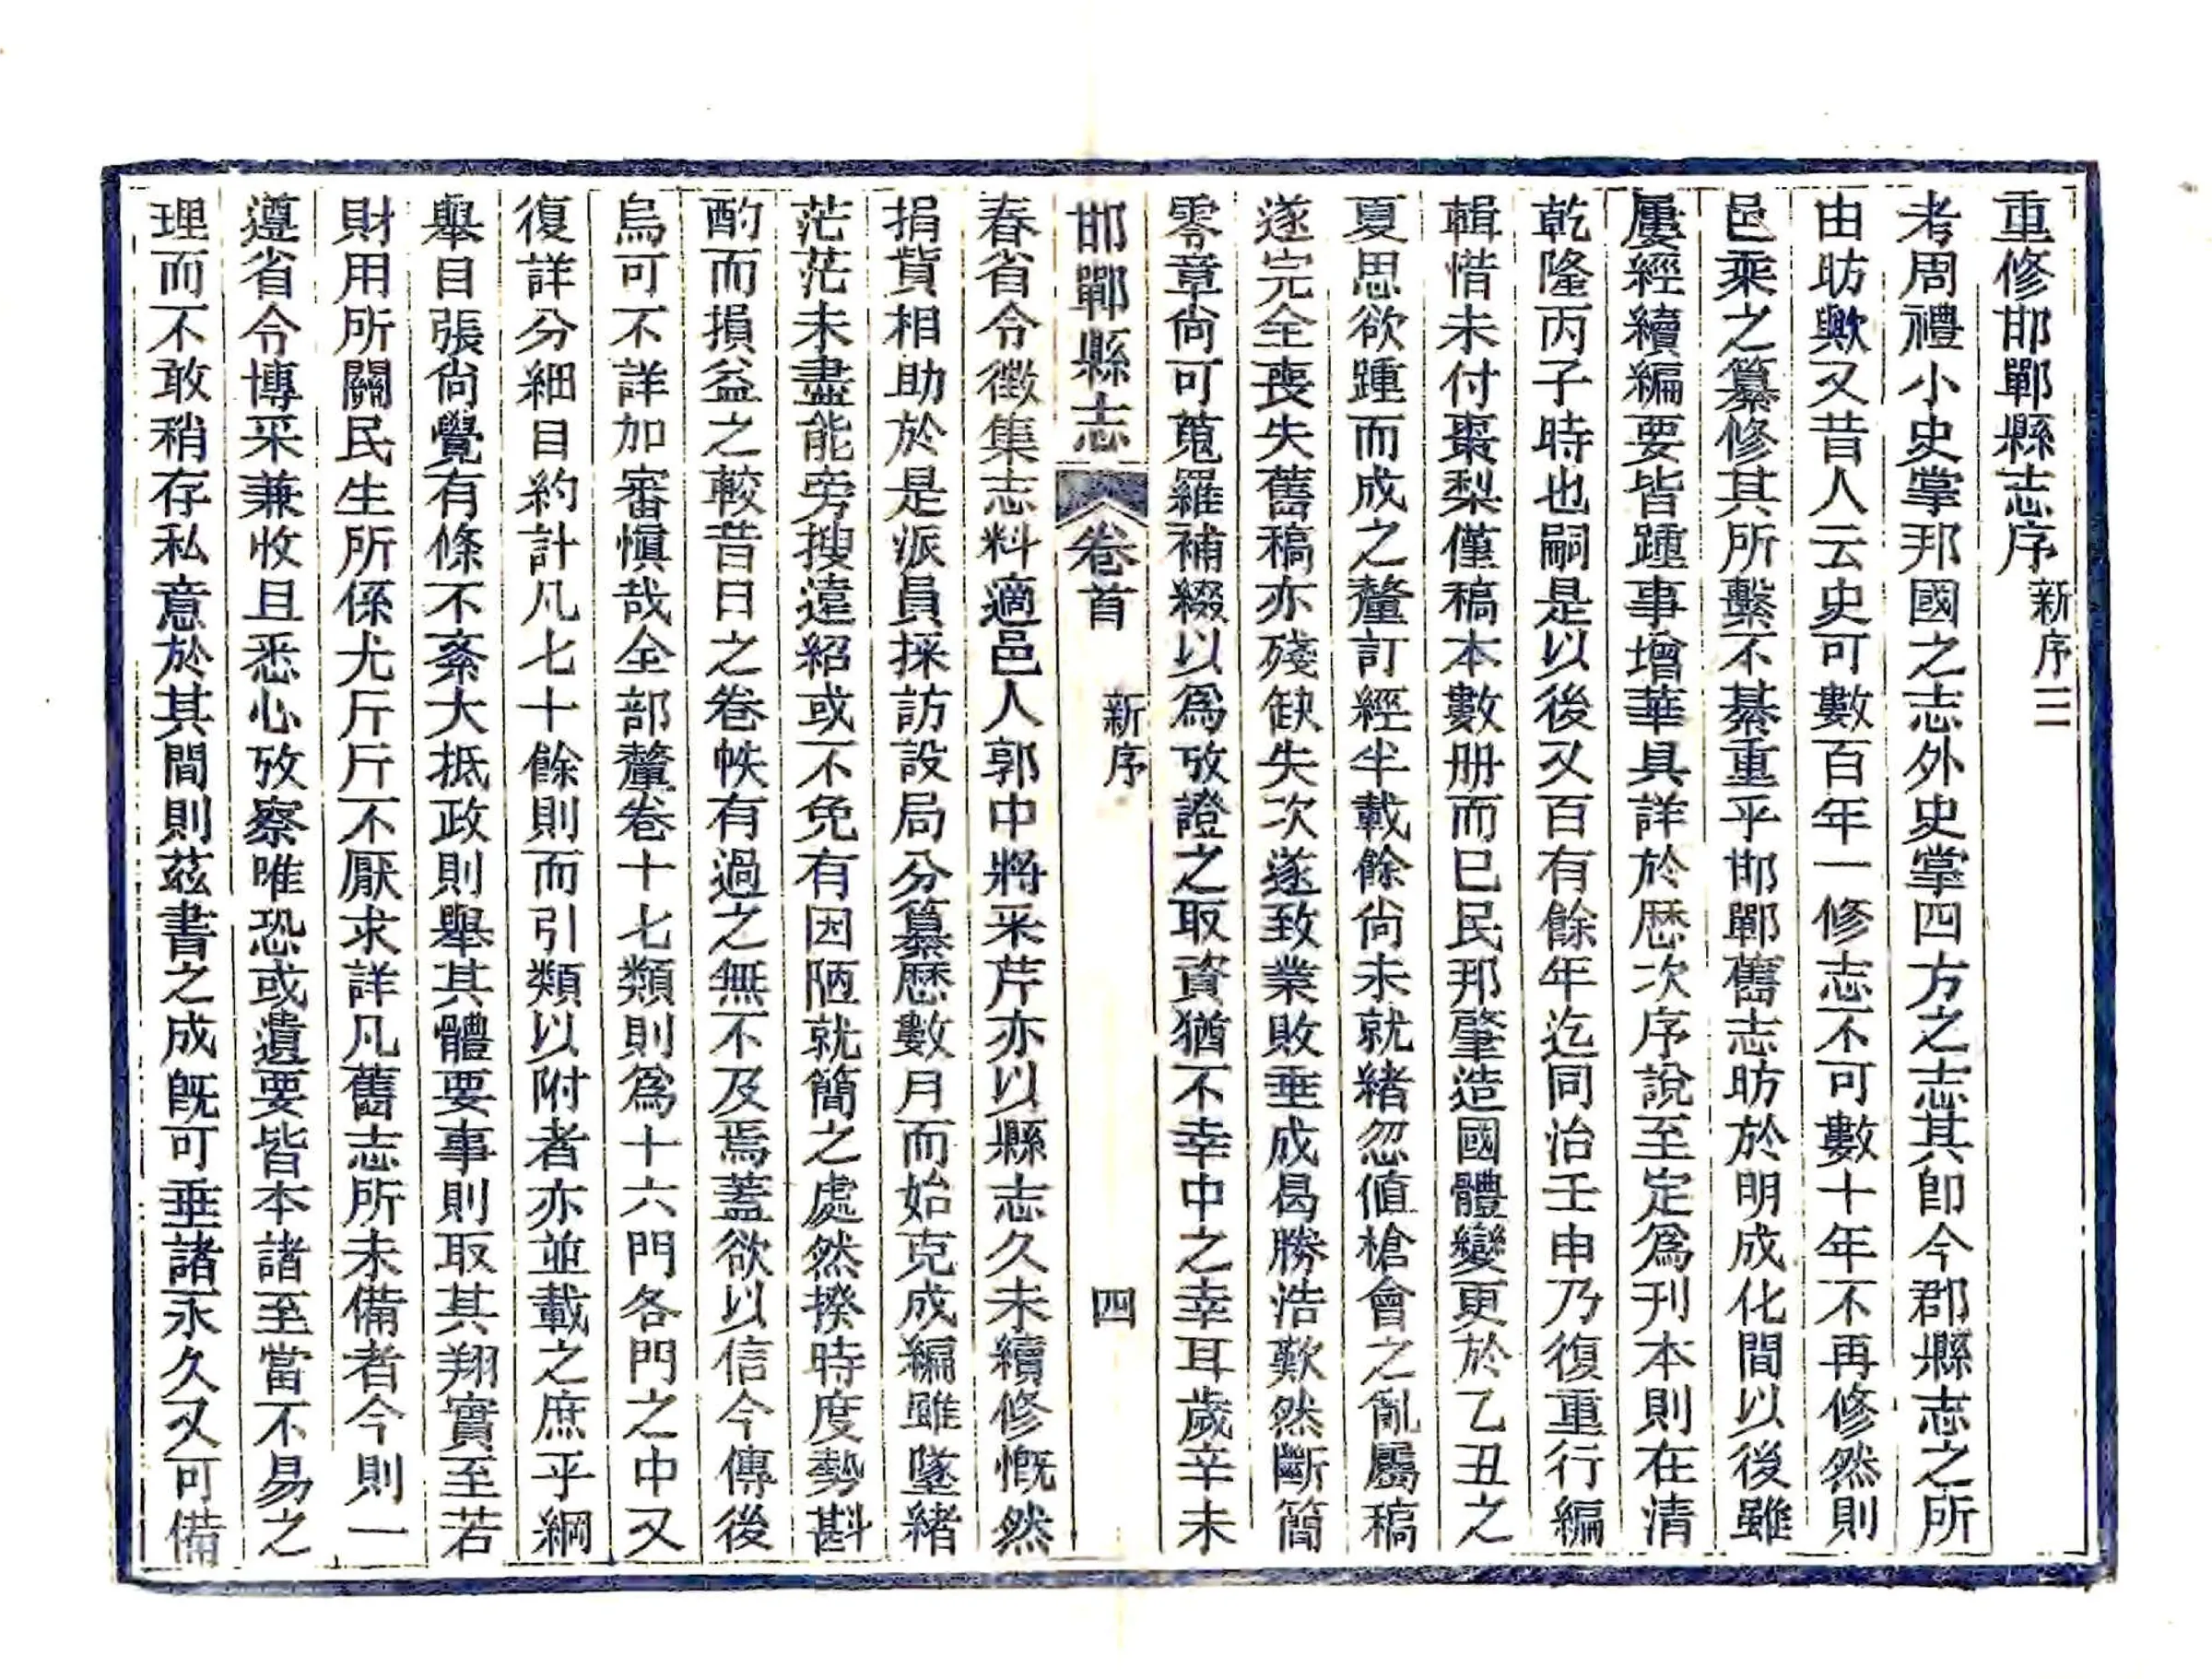 重修邯鄲縣志序新序三
考周禮小史掌邦國之志外史掌四方之志其卽今郡縣志之所
由昉歟又昔人云史可數百年一修志不可數十年不再修然則
邑乘之纂修其所繫不綦重乎邯鄲舊志昉於明成化間以後雖
屢經續編要皆踵事增華具詳於歷次序說至定爲刊本則在清
乾隆丙子時也嗣是以後又百有餘年迄同治壬申乃復重行編
輯惜未付棗梨僅稿本數册而已民邦肇造國體變更於乙丑之
夏思欲踵而成之釐訂經半載餘尙未就緒忽値槍會之亂屬稿
遂完全喪失舊稿亦殘缺失次遂致業敗垂成曷勝浩歎然斷簡
零章尙可蒐羅補綴以爲攷證之取資猶不幸中之幸耳歲辛未
邯鄲縣志 卷首 新序 四
春省令徵集志料適邑人郭中將采芹亦以縣志久未續修慨然
捐貲相助於是派員採訪設局分纂歷數月而始克成編雖墜緒
茫茫未盡能旁搜遠紹或不免有因陋就簡之處然揆時度勢斟
酌而損益之較昔日之卷帙有過之無不及焉蓋欲以信今傳後
烏可不詳加審愼哉全部釐卷十七類則爲十六門各門之中又
復詳分細目約計凡七十餘則而引類以附者亦並載之庶乎綱
舉目張尙覺有條不紊大抵政則舉其體要事則取其翔實至若
財用所關民生所係尤斤斤不厭求詳凡舊志所未備者今則一
遵省令博采兼收且悉心攷察唯恐或遺要皆本諸至當不易之
理而不敢稍存私意於其間則茲書之成旣可垂諸永久又可備